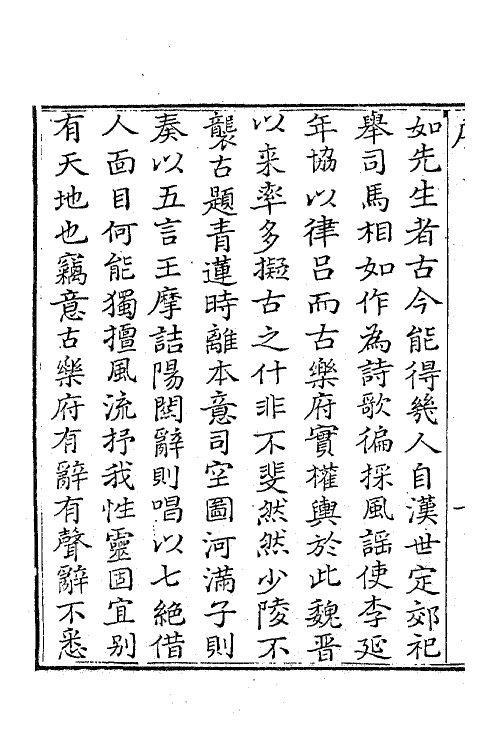 如先生者古今能得幾人自漢世定郊祀
舉司馬相如作為詩歌徧採風謡使李延
年協以律呂而古樂府實權輿於此魏晋
以来率多擬古之什非不斐然然少陵不
襲古題青蓮時離本意司空圖河滿子則
奏以五言王摩詰陽関辭則唱以七絶借
人面目何能獨擅風流抒我性靈固宜别
有天地也竊意古樂府有辭有聲辭不悉